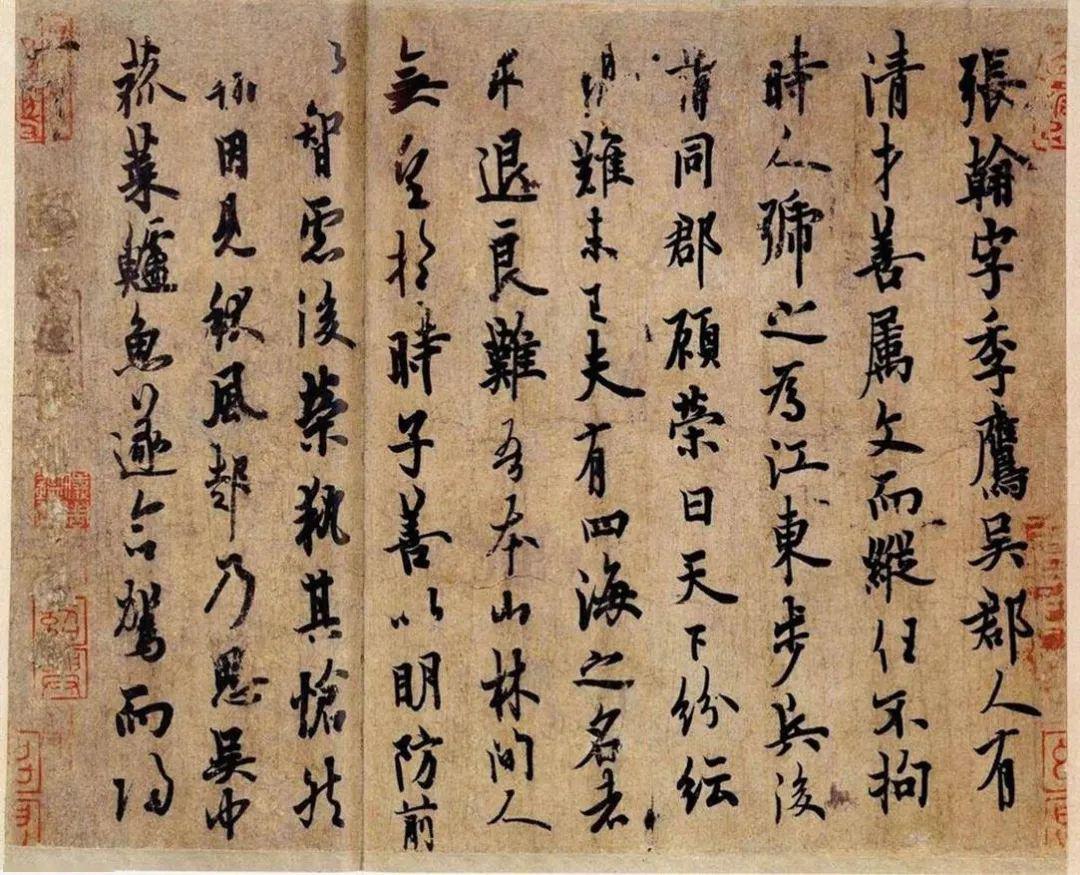 張翰字季鷹吳郡人有
清才善属文而縱任不拘
時人號之為江東步兵後
謂同郡顧榮曰天下紛紜
難未已夫有四海之名者
求退良難吾本山林間人
無望於時子善以明防前
以智慮後榮執其愴然
因見秋風起乃思吳中
菰菜鱸魚遂命駕而歸